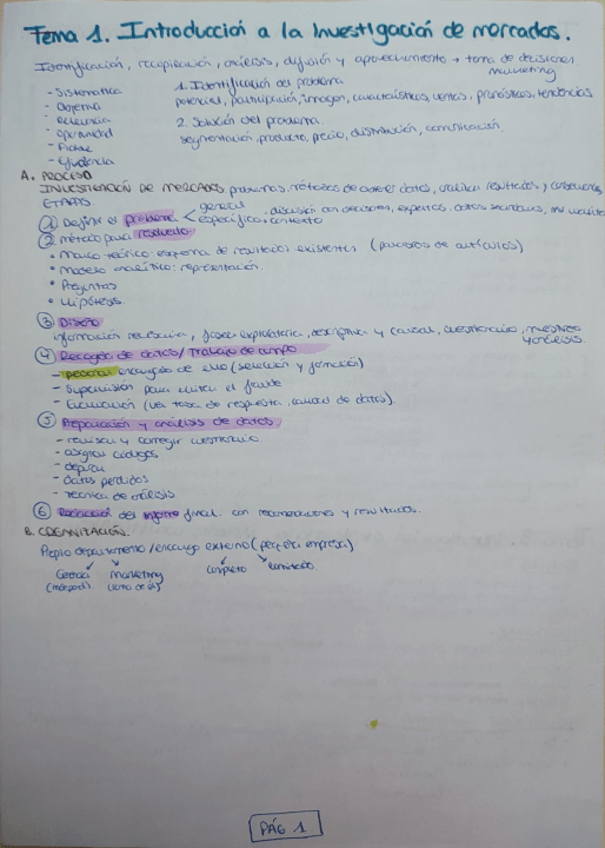 Tema 1. Introducción a la Investigación de mercados.
Identificación, recopilación, análisis, difusión y aprovechamiento → toma de decisiones
marketing
- Sistemática
- Objetiva
- Relevancia
- Oportunidad
- Fiable
- Eficiencia
1. Identificación del problema
potencial, participación, imagen, características, ventas, pronósticos, tendencias
2. Solución del problema.
segmentación, producto, precio, distribución, comunicación.
A. PROCESO
INVESTIGACIÓN DE MERCADOS problemas, métodos de obtener datos, analizar resultados y
ETAPAS
① Definir el problema < general
específico
· discusión con decisores, expertos, datos secundarios,
contexto
② método para resolverlo
• Marco teórico: esquema de resultados existentes
• Modelo analítico: representación.
• Preguntas
• Hipótesis.
③ Diseño
información necesaria, fases exploratoria, descriptiva y causal, cuestionario, muestreo
y análisis.
④ Recogida de datos / Trabajo de campo
- personal encargado de ello (selección y formación)
- Supervisión para evitar el fraude
- Evaluación (ver tasa de respuesta, calidad de datos).
⑤ Preparación y análisis de datos
- revisar y corregir cuestionario.
- asignar códigos
- depurar
- datos perdidos
- técnica de análisis
⑥ del informe final. con recomendaciones y resultados.
B. ORGANIZACIÓN.
Propio departamento / encargo externo (pequeña empresa)
marketing
completo limitado
PÁG 1